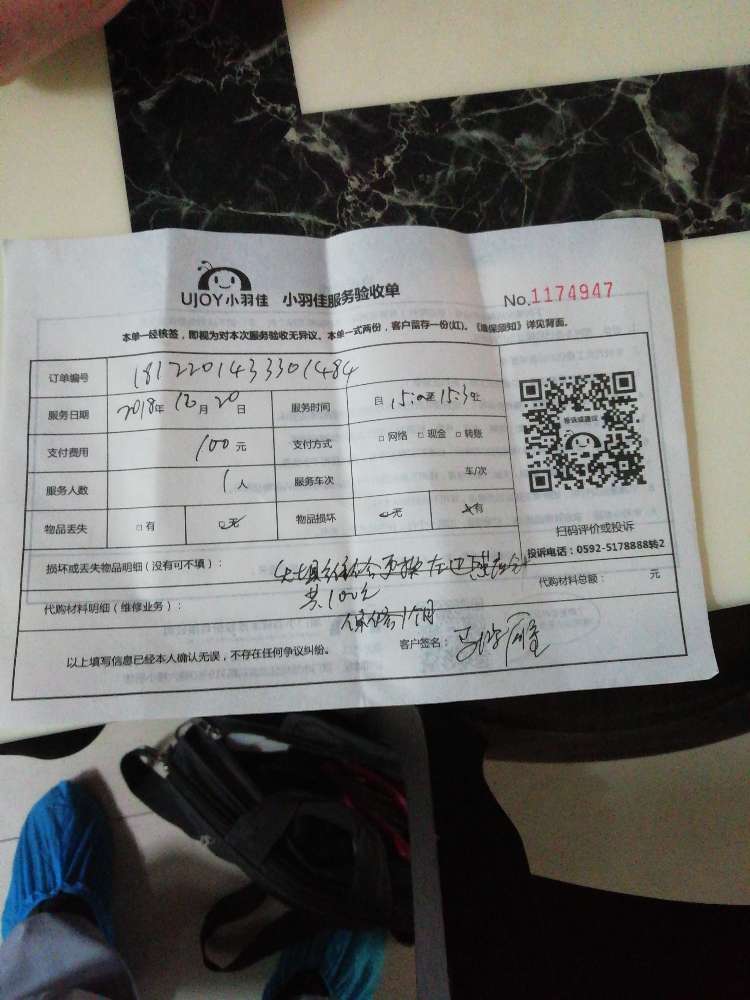 UJOY小羽佳 小羽佳服务验收单
No.1174947
本单一经核签，即视为对本次服务验收无异议。本单一式两份，客户留存一份(红)。《维保须知》详见背面。
订单编号 1812201433301484
服务日期 2018年12月20日 服务时间 自15:00至15:30
支付费用 100元 支付方式 □网络 □现金 □转账
服务人数 1人 服务车次 车/次
物品丢失 □有 □无 物品损坏 □无 □有
投诉或建议
扫码评价或投诉
投诉电话：0592-5178888转2
损坏或丢失物品明细（没有可不填）：
代购材料明细（维修业务）： 共100元
代购材料总额： 元
保修1个月
以上填写信息已经本人确认无误，不存在任何争议纠纷。 客户签名：